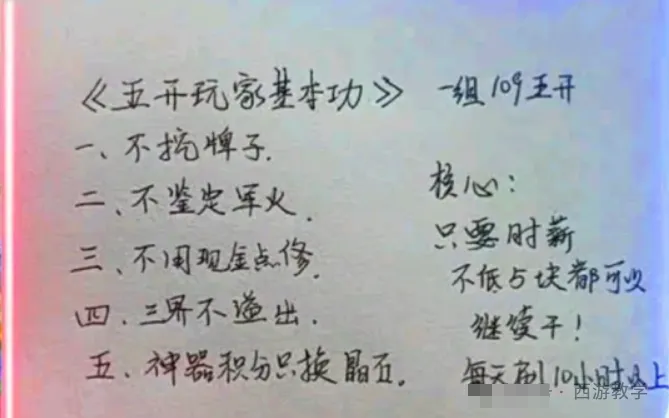 《五开玩家基本功》
一、不挖牌子.
二、不鉴定军火.
三、不用现金点修.
四、三界不溢出.
五、神器积分只换晶石.
一组109五开
核心:
只要时薪
不低5块都可以
继续干!
每天刷10小时以上
西游教学